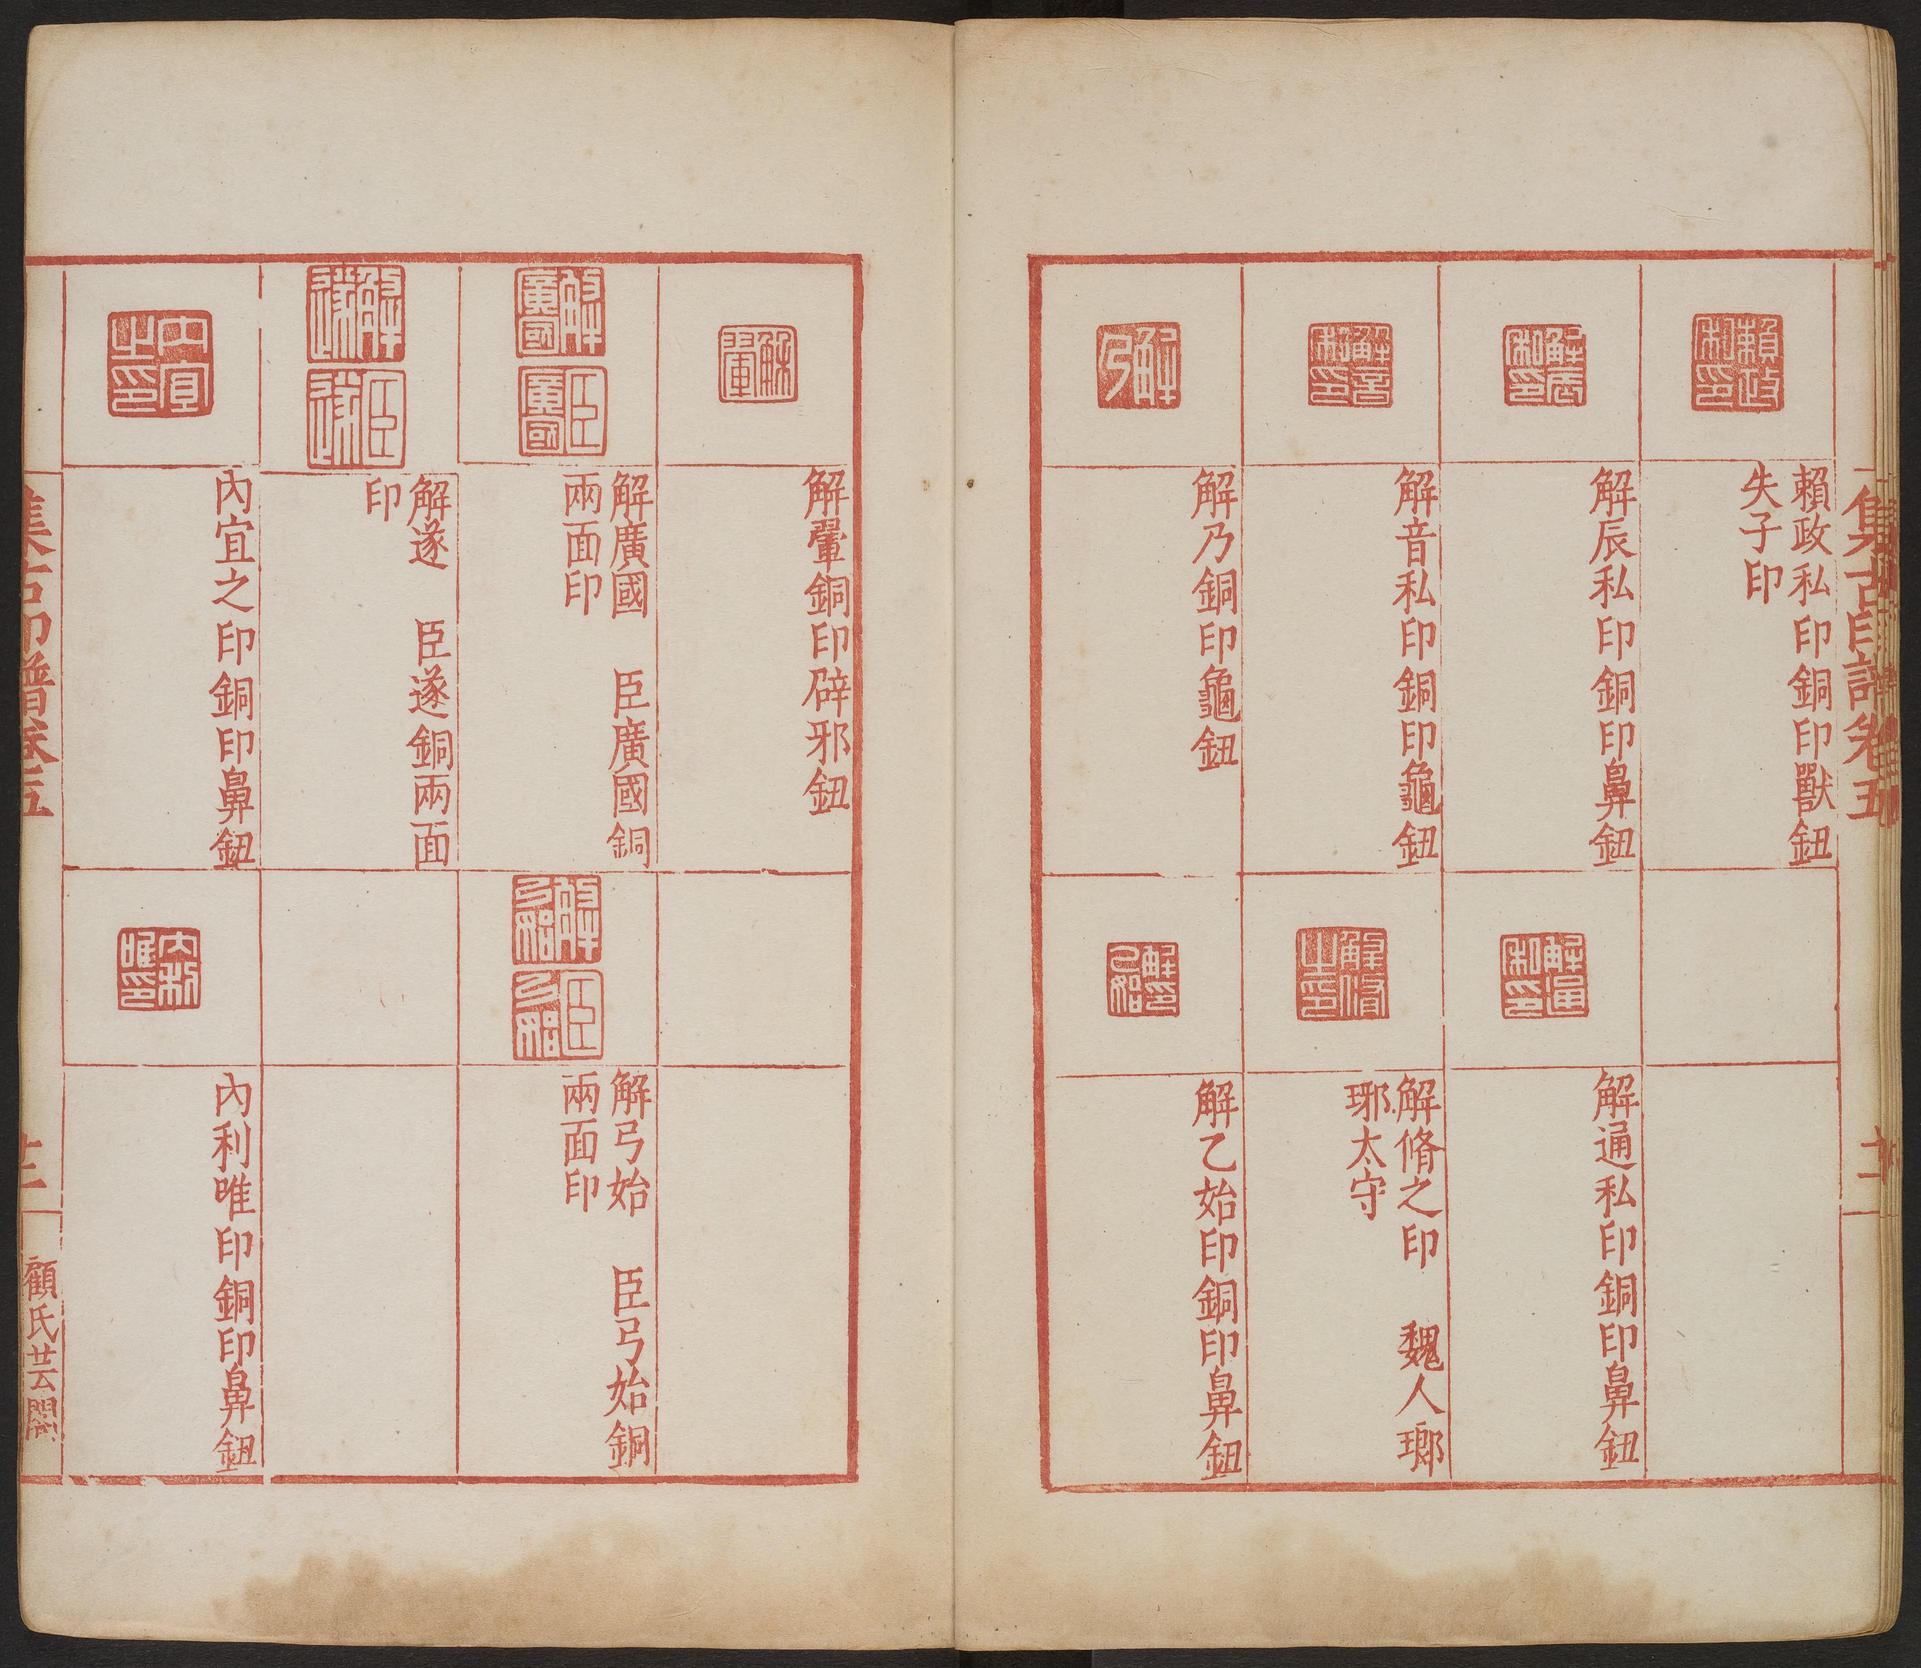 集古印譜卷五
賴政私印銅印獸鈕
失子印
解辰私印銅印鼻鈕
解通私印銅印鼻鈕
解音私印銅印龜鈕
解脩之印 魏人瑯
琊太守
解乃銅印龜鈕
解乙始印銅印鼻鈕
解翬銅印辟邪鈕
解廣國 臣廣國銅
兩面印
解弓始 臣弓始銅
兩面印
解遂 臣遂銅兩面
印
內宜之印銅印鼻鈕
內利唯印銅印鼻鈕
集古印譜卷五
顧氏芸閣